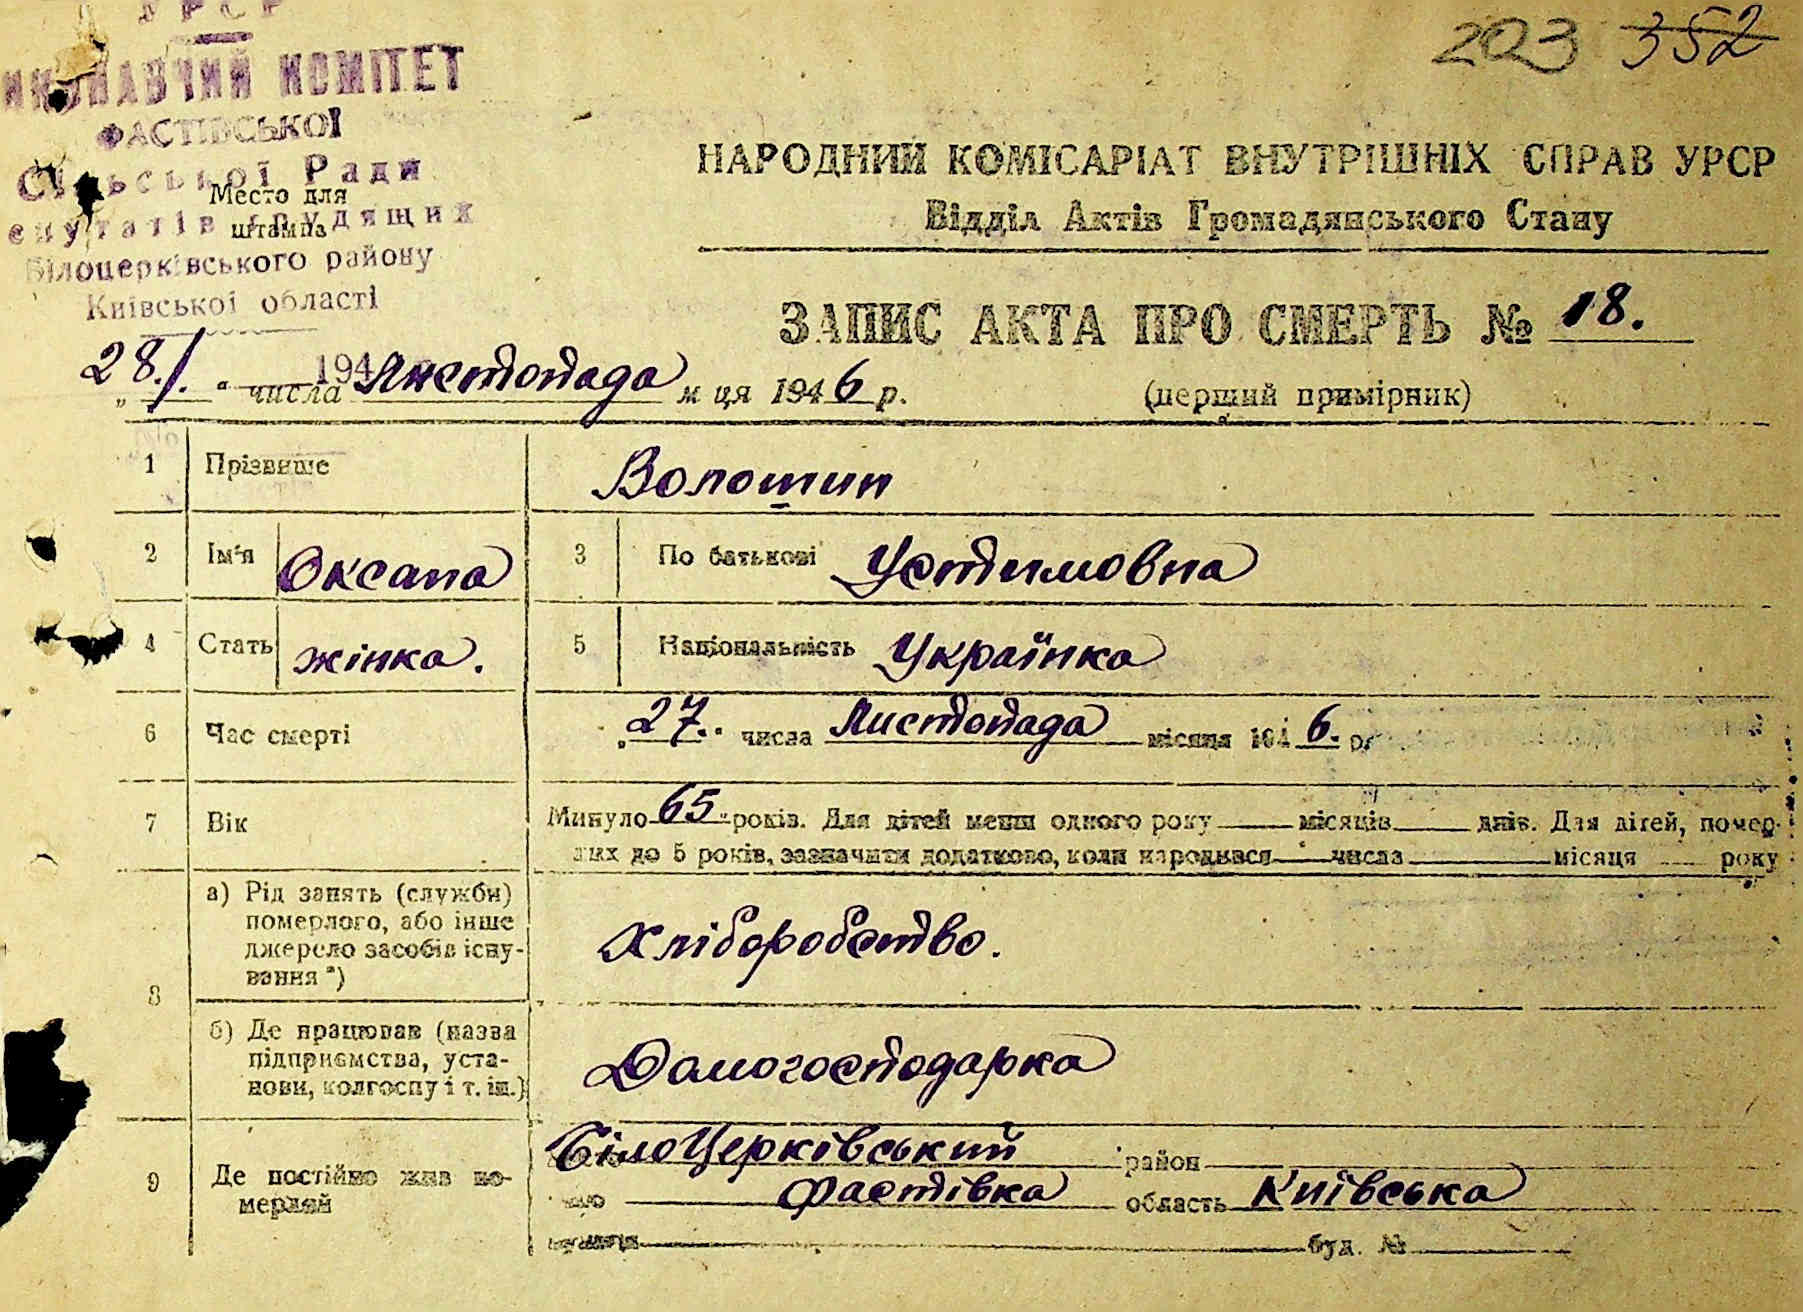 УРСР
203 352
ИКОНАВЧИЙ КОМІТЕТ
ФАСТІВСЬКОЇ
Сільської Ради
Место для
штампа
епутатів трудящих
Білоцерківського району
Київської області
НАРОДНИЙ КОМІСАРІАТ ВНУТРІШНІХ СПРАВ УРСР
Відділ Актів Громадянського Стану
ЗАПИС АКТА ПРО СМЕРТЬ № 18.
194
„28/." числа Листопада м ця 1946 р. (перший примірник)
1 Прізвище Волошин
2 Ім'я Оксана 3 По батькові Устимовна
4 Стать жінка. 5 Національність Українка
6 Час смерті „27." числа Листопада місяця 1946. р.
7 Вік Минуло 65 років. Для дітей менш одного року місяців днів. Для дітей, помер-
лих до 5 років, зазначити додатково, коли народився числа місяця року
8 а) Рід занять (служби)
померлого, або інше
джерело засобів існу-
вання *)
Хліборобство.
б) Де працював (назва
підприємства, уста-
нови, колгоспу і т. ін.)
Домогосподарка
9 Де постійно жив по-
мерлий
БілоЦерківський район
Фастівка область Київська
буд. №